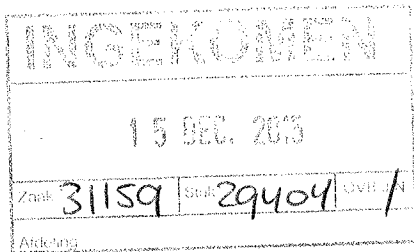 INGEKOMEN
15 DEC. 2015
Zaak 31159 Stuk 29404 OVB J/N
Afdeling